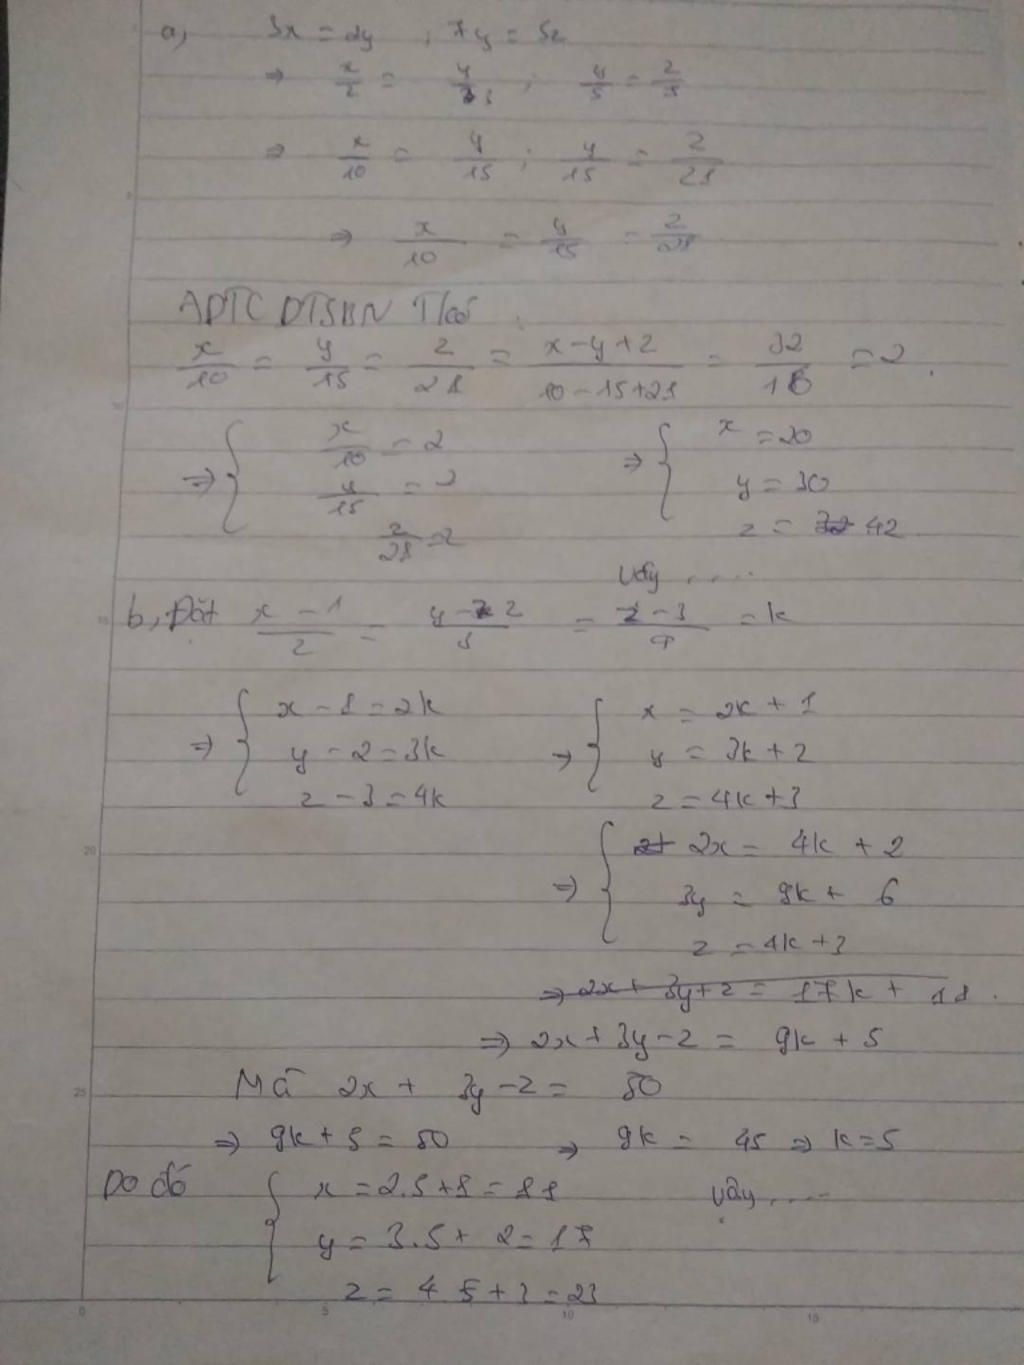 a, 3x = 2y ; 7y = 5z
⇒ x/2 = y/3 ; y/5 = z/7
⇒ x/10 = y/15 ; y/15 = z/21
⇒ x/10 = y/15 = z/21
ADTC DTSBN T/có
x/10 = y/15 = z/21 = x-y+z/10-15+21 = 32/16 = 2
⇒ { x/10 = 2 ⇒ { x = 20
y/15 = 2 y = 30
z/21 = 2 z = 42
Vậy ....
b, Đặt x-1/2 = y-2/3 = z-3/4 = k
⇒ { x - 1 = 2k ⇒ { x = 2k + 1
y - 2 = 3k y = 3k + 2
z - 3 = 4k z = 4k + 3
⇒ { 2x = 4k + 2
3y = 9k + 6
z = 4k + 3
⇒ 2x + 3y + z = 17k + 11.
⇒ 2x + 3y - z = 9k + 5
Mà 2x + 3y - z = 50
⇒ 9k + 5 = 50 ⇒ 9k = 45 ⇒ k = 5
Do đó { x = 2.5 + 1 = 11 Vậy ....
y = 3.5 + 2 = 17
z = 4 5 + 3 = 23
0 5 10 15
20
25